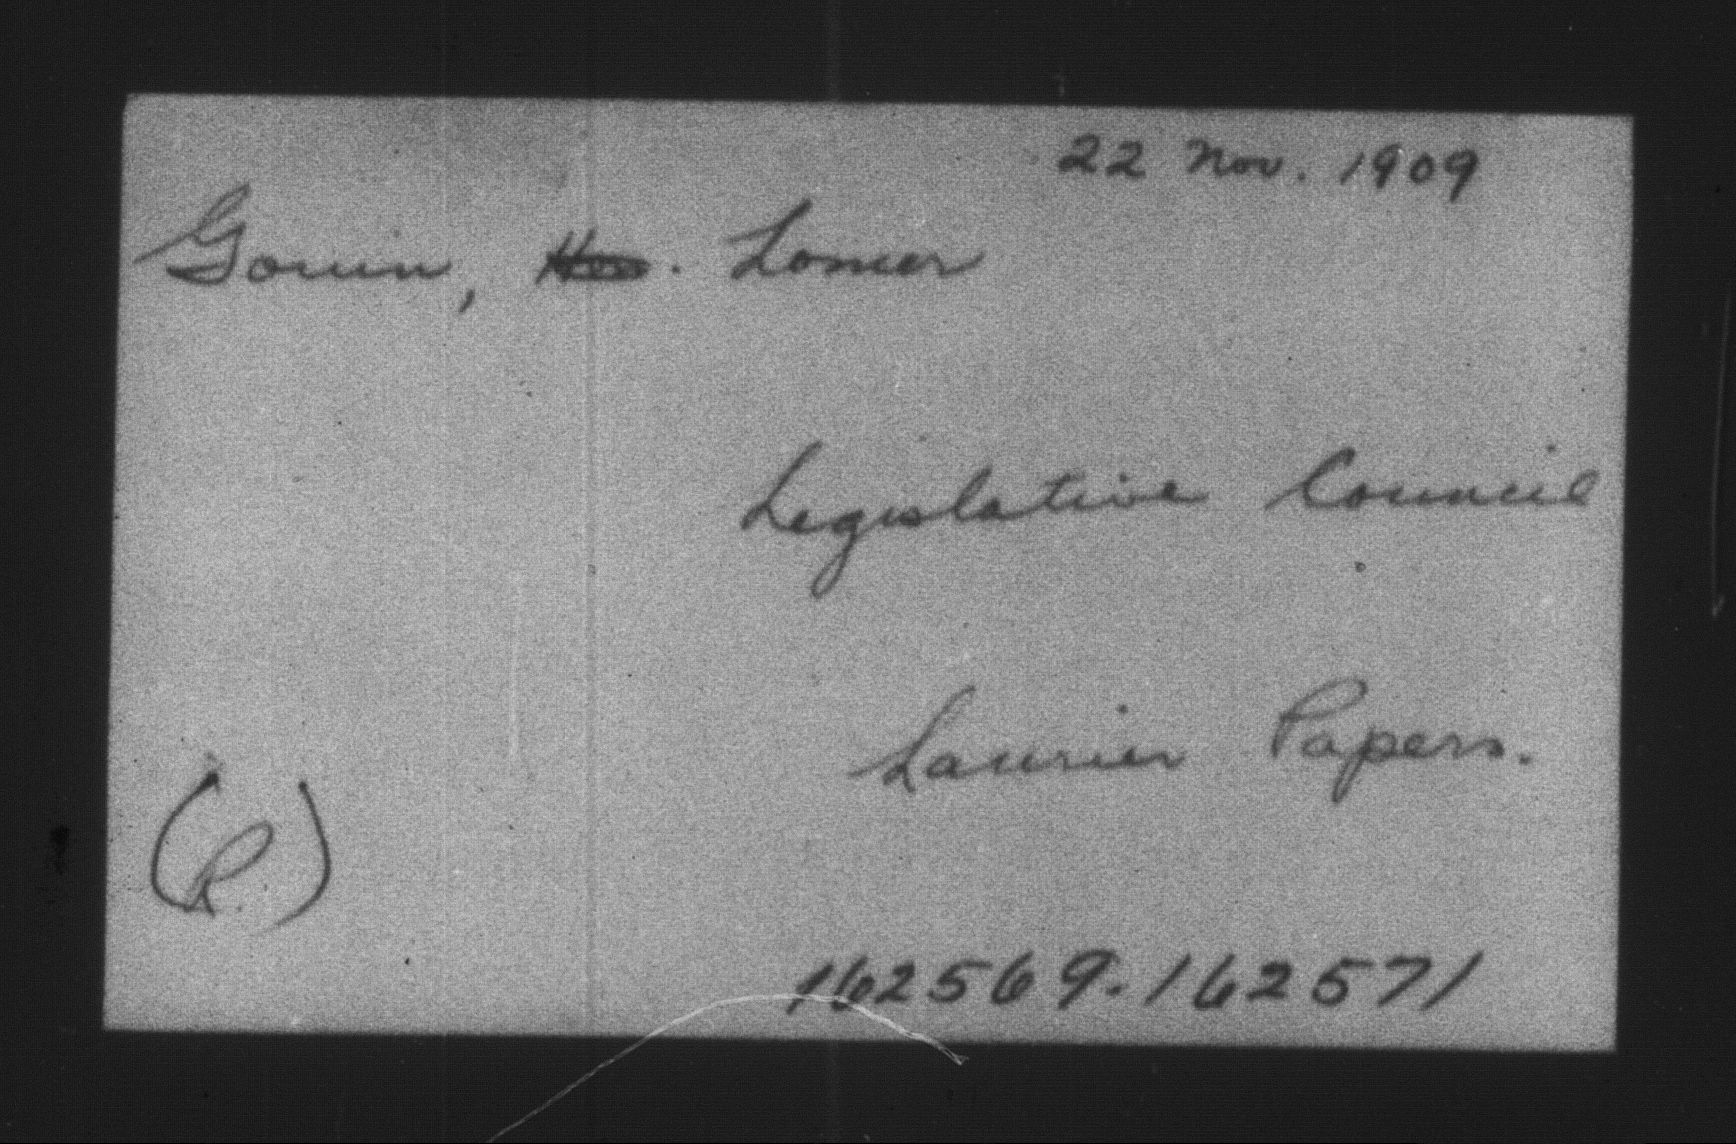 22 Nov. 1909
Gouin, Hon. Lomer
Legislative Council
Laurier Papers.
(R.)
162569-162571